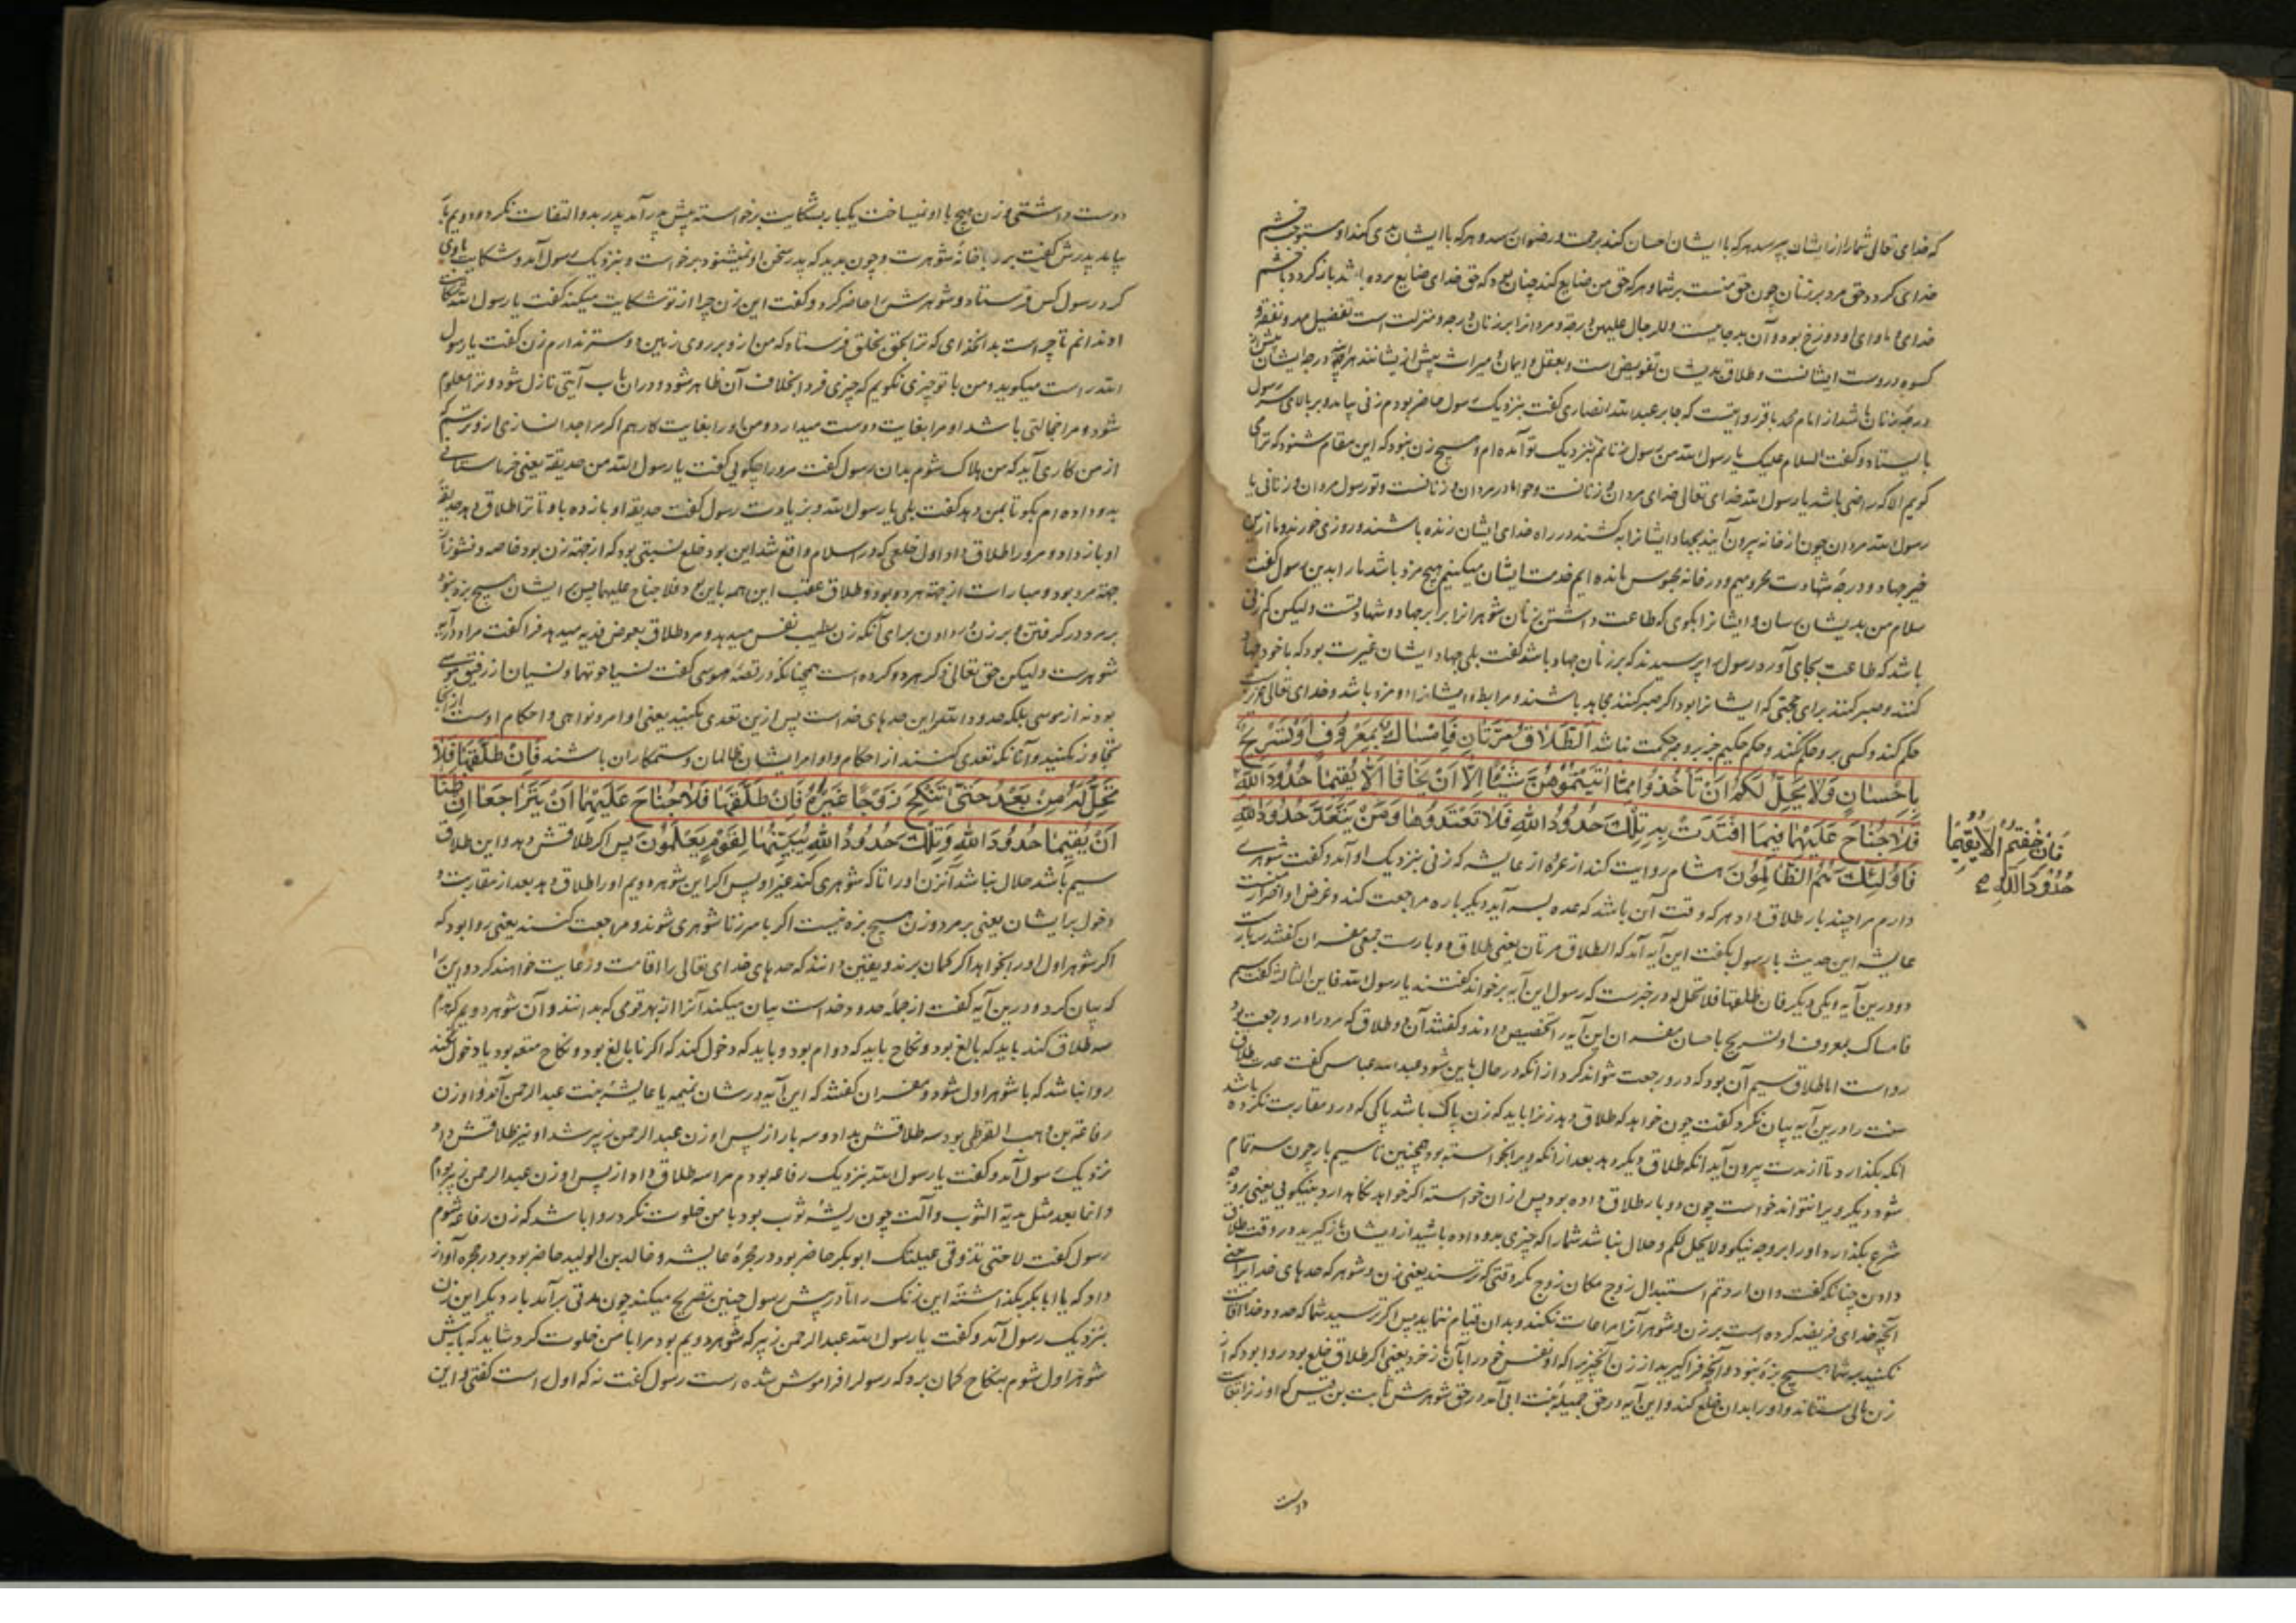 که خدای تعالی شما را از ایشان بپرسد هر که با ایشان احسان کند برحمت و رضوان رسد و هر که با ایشان بدی کند او مستوجب خشم
خدای کردد و حق مرد بر زنان چون حق منست بر شما و هر که حق من ضایع کند چنان بود که حق خدای ضایع برده باشد باز کردد با خشم
خدای و ماوای او دوزخ بود و آن بد جاییست وللرجال علیهن درجة و مردانرا بر زنان درجه و منزلت است تفضیل مهر و نفقه و
کسوه در دست ایشانست و طلاق بدیشان تفویض است و بعقل و ایمان و میراث پیش از یشانند هر آینه درجه ایشان بیش از
درجه زنان باشد از امام محمد باقر روایتست که جابر عبد الله انصاری گفت بنزدیک رسول حاضر بودم زنی بیامد و بر بالای سر رسول
بایستاد و گفت السلام علیک یا رسول الله من رسول زنانم بنزدیک تو آمده ام و هیچ زن نبود که این مقام شنود که ترا می
کویم الا که راضی باشد یا رسول الله خدای تعالی خدای مردان و زنانست و حوا مادر مردان و زنانست و تو رسول مردان و زنانی یا
رسول الله مردان چون از خانه بیرون آیند بجهاد و ایشانرا بکشند در راه خدای ایشان زنده باشند و روزی خورند و ما ازین
خیر جهاد و درجه شهادت محرومیم و در خانه محبوس مانده ایم خدمت ایشان میکنیم هیچ مزد باشد ما را بدین رسول گفت
سلام من بدیشان برسان و ایشانرا بکوی که طاعت داشتن زنان شوهرانرا برابر جهاد و شهادتست ولیکن کم زنی
باشد که طاعت بجای آورد رسول را پرسیدند که بر زنان جهاد باشد گفت بلی جهاد ایشان غیرت بود که با خود جهاد
کنند و صبر کنند برای حجتی که ایشانرا بود اکر صبر کنند مجاهد باشند و مرابط و ایشانرا دو مزد باشد و خدای تعالی عزیزست
حکم کند و کسی بر وی حکم نکند و حکم حکیم جز بر وجه حکمت نباشد اَلطَّلَاقُ مَرَّتَانِ فَاِمْسَاكٌ بِمَعْرُوفٍ اَوْ تَسْرِيحٌ
بِاِحْسَانٍ وَلَا يَحِلُّ لَكُمْ اَنْ تَأْخُذُوا مِمَّا اٰتَيْتُمُوهُنَّ شَيْئًا اِلَّا اَنْ يَخَافَا اَلَّا يُقِيمَا حُدُودَ اللّٰهِ
فَلَا جُنَاحَ عَلَيْهِمَا فِيمَا افْتَدَتْ بِهِ تِلْكَ حُدُودُ اللّٰهِ فَلَا تَعْتَدُوهَا وَمَنْ يَتَعَدَّ حُدُودَ اللّٰهِ
فَاِنْ خِفْتُمْ اَلَّا يُقِيمَا
حُدُودَ اللّٰهِ
فَاُولٰئِكَ هُمُ الظَّالِمُونَ هشام روایت کند از عروه از عایشه که زنی بنزدیک او آمد و گفت شوهری
دارم مرا چند بار طلاق داد هر که وقت آن باشد که عده بسر آید دیکر باره مراجعت کند و غرض او اضرارست
عایشه این حدیث با رسول بگفت این آیه آمد که الطلاق مرتان یعنی طلاق دو بارست جمعی مفسران گفتند سه بارست
دو درین آیه و یکی دیکر فان طلقها فلا تحل له در خبرست که رسول این آیه بر خواند گفتند یا رسول الله فاین الثالثة گفت سیم
فامساک بمعروف او تسریح باحسان مفسران این آیه را تخصیص دادند و گفتند آن دو طلاق که مرد را در و رجعت بود
رواست اما طلاق سیم آن بود که در و رجعت نتواند کرد از آنکه در حال باین شود عبد الله عباس گفت عدت طلاق
سنت را درین آیه بیان نکرد گفت چون خواهد که طلاق دهد زنرا باید که زن پاک باشد پاکی که در و مقاربت نکرده باشد
انکه بگذارد تا از عدت بیرون آید انکه طلاق دیکر دهد بعد از آنکه ویرا بخواسته بود همچنین تا سیم بار چون سه تمام
شود دیکر ویرا نتواند خواست چون دو بار طلاق داده بود پس از ان خواسته اکر خواهد نکاهدارد بنیکویی یعنی بر وجه
شرع بگذارد او را بر وجه نیکو ولا یحل لکم و حلال نباشد شما را که چیزی بدو داده باشید از ایشان بازگیرید در وقت طلاق
دادن چنانکه گفت وان اردتم استبدال زوج مکان زوج مکر وقتی که ترسند یعنی زن و شوهر که حدهای خدایرا یعنی
آنچه خدای فریضه کرده است بر زن و شوهر آنرا مراعات نکنند و بدان قیام ننمایند پس اکر ترسید شما که حدود خدا اقامت
نکنند بر شما هیچ بزه نبود و آنچه فراکیرید از زن آنچیز را که او نفس خود را بآن باز خرد یعنی اکر طلاق خلع بود روا بود که از
زن مالی ستاند و او را بدان خلع کند و این آیه در حق جمیله بنت ابی آمد در حق شوهرش ثابت بن قیس که او زنرا بغایت
دوست
دوست داشتی و زن هیچ با او نمیساخت یکبار بشکایت برخواسته پیش پدر آمد پدر بدو التفات نکرد دویم بار
بیامد پدرش گفت برو با خانه شوهرت و چون بدید که پدر سخن او نمیشنود برخواست و بنزدیک رسول آمد و شکایت با وی
کرد رسول کس فرستاد و شوهرش را حاضر کرد و گفت این زن چرا از تو شکایت میکند گفت یا رسول الله شکایت
او ندانم تا چراست بدانخدای که ترا بحق بخلق فرستاد که من از و بر روی زمین دوستر ندارم زن گفت یا رسول
الله راست میکوید و من با تو چیزی نکویم که چیزی فردا بخلاف آن ظاهر شود و در ان باب آیتی نازل شود و ترا معلوم
شود و مرا خجالتی باشد او مرا بغایت دوست میدارد و من او را بغایت کارهم اکر مرا جدا نسازی ازو ترسم که
از من کاری آید که من هلاک شوم بدان رسول گفت مرو را چکویی گفت یا رسول الله من حدیقة یعنی خرماستانی
بدو داده ام بکو تا بمن دهد گفت بلی یا رسول الله و بزیادت رسول گفت حدیقه او باز ده با و تا ترا طلاق دهد حدیقه
او باز داد و مرورا طلاق داد اول خلعی که در اسلام واقع شد این بود خلع نسبتی بود که از جهة زن بود خاصه و نشوز از
جهة مرد بود و مبارات از جهة هر دو بود و طلاق عقب این همه باین بود فلا جناح علیهما پس بر ایشان هیچ بزه نبود
بر مرد در کرفتن و بر زن در دادن برای آنکه زن بطیب نفس میدهد و مرد طلاق بعوض فدیه میدهد فرا گفت مراد از آیه
شوهرست ولیکن حق تعالی ذکر هر دو کرده است همچنانکه در قصه موسی گفت نسیا حوتهما و نسیان از رفیق موسی
بود نه از موسی تلک حدود الله این حدهای خداست پس ازین تعدی مکنید یعنی اوامر و نواهی و احکام اوست از آنجا
تجاوز مکنید و آنانکه تعدی کنند از احکام و اوامر ایشان ظالمان و ستمکاران باشند فَاِنْ طَلَّقَهَا فَلَا
تَحِلُّ لَهُ مِنْ بَعْدُ حَتّٰى تَنْكِحَ زَوْجًا غَيْرَهُ فَاِنْ طَلَّقَهَا فَلَا جُنَاحَ عَلَيْهِمَا اَنْ يَتَرَاجَعَا اِنْ ظَنَّا
اَنْ يُقِيمَا حُدُودَ اللّٰهِ وَتِلْكَ حُدُودُ اللّٰهِ يُبَيِّنُهَا لِقَوْمٍ يَعْلَمُونَ پس اکر طلاقش دهد و این طلاق
سیم باشد حلال نباشد آنزن او را تا که شوهری کند غیر او پس اکر این شوهر دویم او را طلاق دهد بعد از مقاربت و
دخول بر ایشان یعنی بر مرد و زن هیچ بزه نیست اکر با سر زناشوهری شوند و مراجعت کنند یعنی روا بود که
اکر شوهر اول او را بخواهد اکر کمان برند و یقین دانند که حدهای خدای تعالی را اقامت و رعایت خواهند کرد و این را
که بیان کرد و درین آیه گفت از جمله حدود خداست بیان میکند آنرا از بهر قومی که بدانند و آن شوهر دویم که
سه طلاق کند باید که بالغ بود و نکاح باید که دوام بود و باید که دخول کند که اکر نابالغ بود و نکاح متعه بود یا دخول نکند
روا نباشد که با شوهر اول شود و مفسران گفتند که این آیه در شان تمیمه یا عایشه بنت عبد الرحمن آمد و او زن
رفاعة بن وهب القرظی بود سه طلاقش بداد و سه بار از پس او زن عبد الرحمن زبیر شد او نیز طلاقش داد
نزدیک رسول آمد و گفت یا رسول الله بنزدیک رفاعه بودم مرا سه طلاق داد از پس او زن عبد الرحمن زبیر بودم
وانما معه مثل هدبة الثوب و آلت چون ریشه ثوب بود با من خلوت نکرد روا باشد که زن رفاعه شوم
رسول گفت لا حتی تذوقی عسیلتک ابوبکر حاضر بود در حجره عایشه و خالد بن الولید حاضر بود بر در حجره آواز
داد که یا ابابکر بگذاشته این زنک را تا در پیش رسول چنین تصریح میکند چون مدتی برآمد بار دیکر این زن
بنزدیک رسول آمد و گفت یا رسول الله عبد الرحمن زبیر که شوهر دویم بود مرا با من خلوت کرد شاید که با پیش
شوهر اول شوم بنکاح کمان برد که رسول را فراموش شده است رسول گفت نه که اول است گفتی و این